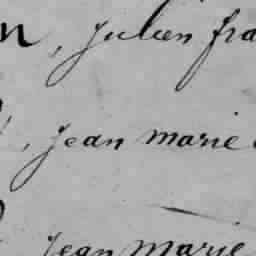 n, julien fra
, jean marie
jean marie